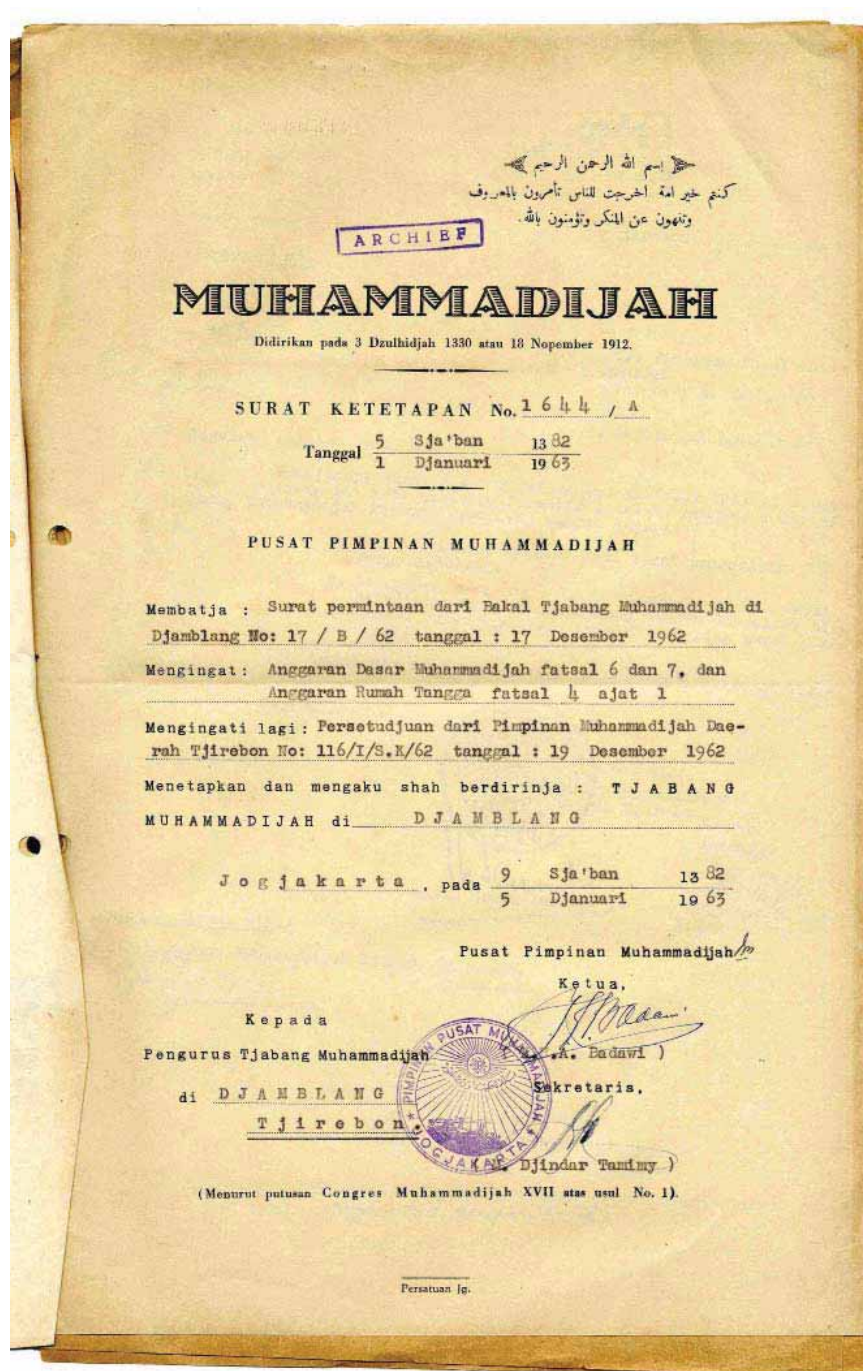 بسم الله الرحمن الرحيم
كنتم خير امة اخرجت للناس تأمرون بالمعروف
وتنهون عن المنكر وتؤمنون بالله.
ARCHIEF
MUHAMMADIJAH
Didirikan pada 3 Dzulhidjah 1330 atau 18 Nopember 1912.
SURAT KETETAPAN No. 1644 / A
Tanggal 5 Sja'ban 1382
1 Djanuari 1963
PUSAT PIMPINAN MUHAMMADIJAH
Membatja : Surat permintaan dari Bakal Tjabang Muhammadijah di
Djamblang No: 17 / B / 62 tanggal : 17 Desember 1962
Mengingat : Anggaran Dasar Muhammadijah fatsal 6 dan 7, dan
Anggaran Rumah Tangga fatsal 4 ajat 1
Mengingati lagi : Persetudjuan dari Pimpinan Muhammadijah Dae-
rah Tjirebon No: 116/I/S.K/62 tanggal : 19 Desember 1962
Menetapkan dan mengaku shah berdirinja : TJABANG
MUHAMMADIJAH di DJAMBLANG
Jogjakarta, pada 9 Sja'ban 1382
5 Djanuari 1963
Pusat Pimpinan Muhammadijah
Ketua,
Kepada
Pengurus Tjabang Muhammadijah
.A. Badawi )
di DJAMBLANG
Sekretaris,
Tjirebon.
PIMPINAN PUSAT MUHAMMADIJAH
JOGJAKARTA
Djindar Tamimy )
(Menurut putusan Congres Muhammadijah XVII atas usul No. 1).
Persatuan Jg.